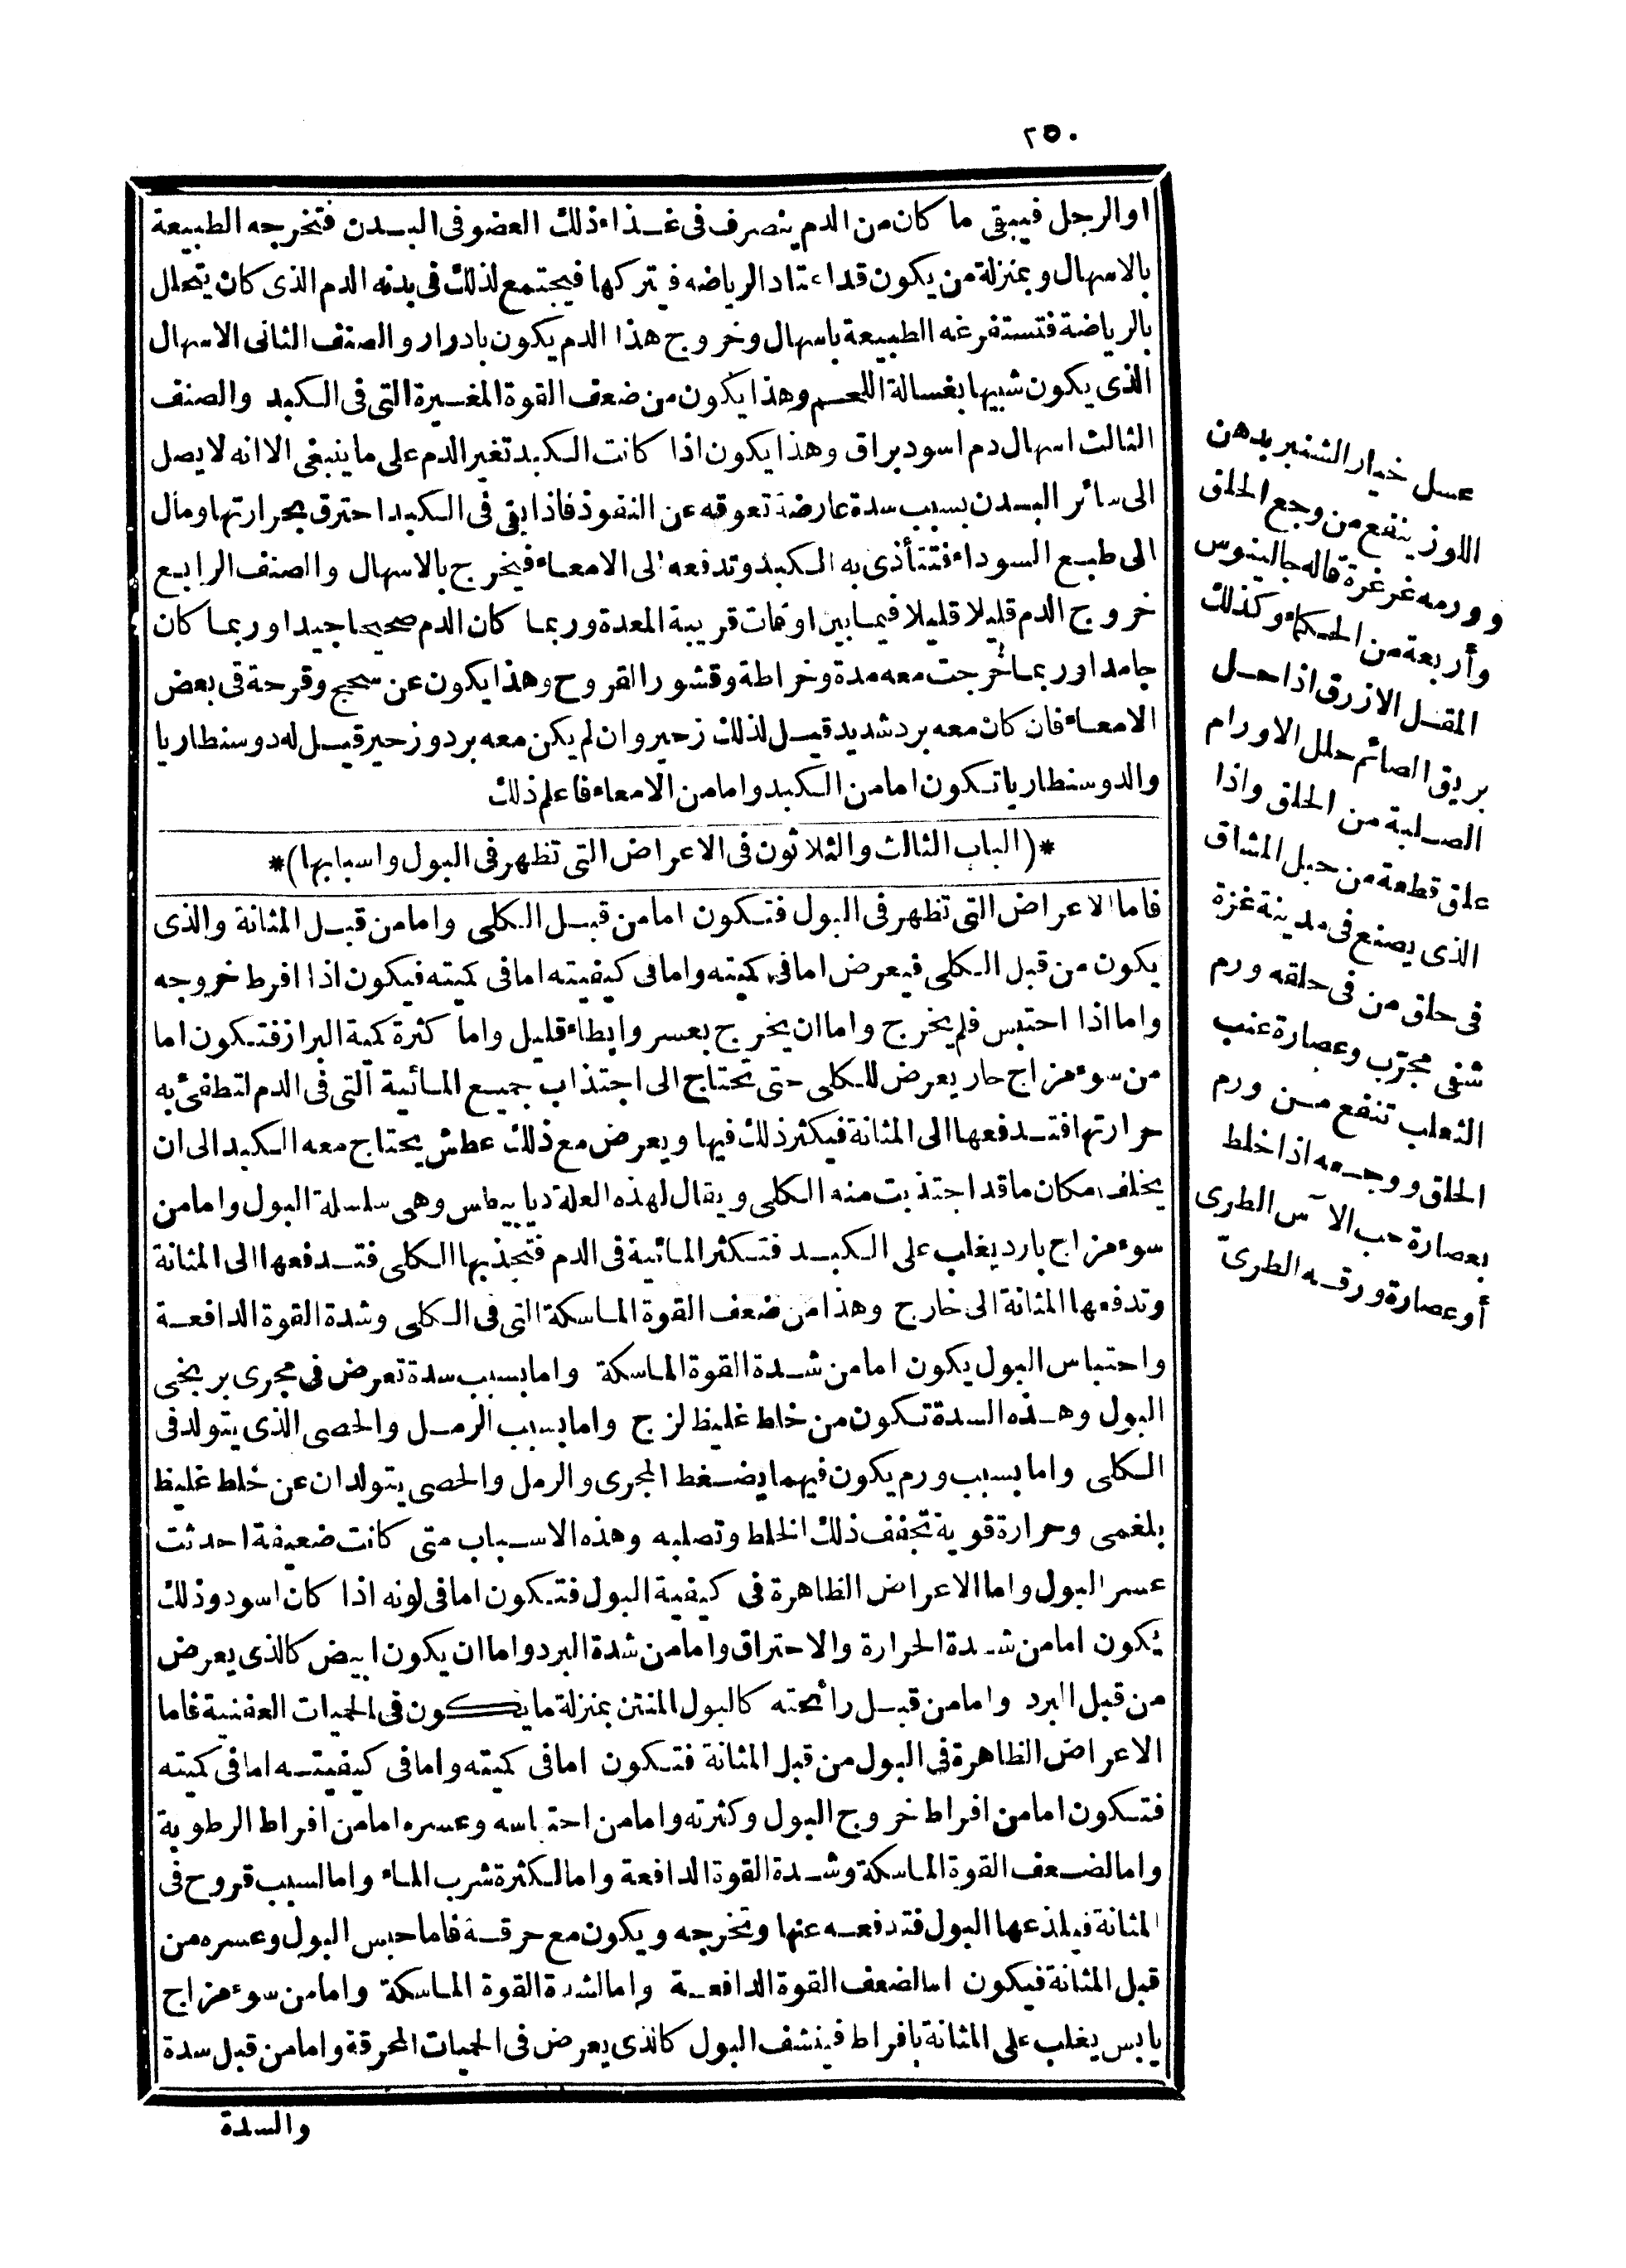 ٢٥٠
او الرجل فيبقى ما كان من الدم ينصرف فى غذاء ذلك العضو فى البدن فتخرجه الطبيعة
بالاسهال وبمنزلة من يكون قد اعتاد الرياضه فيتركها فيجتمع لذلك فى بدنه الدم الذى كان يتحلل
بالرياضة فتستفرغه الطبيعة باسهال وخروج هذا الدم يكون بادوار والصنف الثانى الاسهال
الذى يكون شبيها بغسالة اللحم وهذا يكون من ضعف القوة المغيرة التى فى الكبد والصنف
الثالث اسهال دم اسود براق وهذا يكون اذا كانت الكبد تغير الدم على ما ينبغى الا انه لا يصل
الى سائر البدن بسبب سدة عارضة تعوقه عن النفوذ فاذا بقى فى الكبد احترق بحرارتها ومال
الى طبع السوداء فتتأذى به الكبد وتدفعه الى الامعاء فيخرج بالاسهال والصنف الرابع
خروج الدم قليلا قليلا فيما بين اوقات قريبة المعدة وربما كان الدم صحيحا جيدا وربما كان
جامدا وربما خرجت معه مدة وخراطة وقشور القروح وهذا يكون عن سحج وقرحة فى بعض
الامعاء فان كان معه برد شديد قيل لذلك زحير وان لم يكن معه برد وزحير قيل له دوسنطاريا
والدوسنطاريا تكون اما من الكبد واما من الامعاء فاعلم ذلك
*(الباب الثالث والثلاثون فى الاعراض التى تظهر فى البول واسبابها)*
فاما الاعراض التى تظهر فى البول فتكون اما من قبل الكلى واما من قبل المثانة والذى
يكون من قبل الكلى فيعرض اما فى كميته واما فى كيفيته اما فى كميته فيكون اذا افرط خروجه
واما اذا احتبس فلم يخرج واما ان يخرج بعسر وابطاء قليل واما كثرة كمية البراز فتكون اما
من سوء مزاج حار يعرض للكلى حتى تحتاج الى اجتذاب جميع المائية التى فى الدم لتطفئ به
حرارتها فتدفعها الى المثانة فيكثر ذلك فيها ويعرض مع ذلك عطش يحتاج معه الكبد الى ان
يخلف مكان ما قد اجتذبت منه الكلى ويقال لهذه العلة ديابيطس وهى سلسلة البول واما من
سوء مزاج بارد يغلب على الكبد فتكثر المائية فى الدم فتجذبها الكلى فتدفعها الى المثانة
وتدفعها المثانة الى خارج وهذا من ضعف القوة الماسكة التى فى الكلى وشدة القوة الدافعة
واحتباس البول يكون اما من شدة القوة الماسكة واما بسبب سدة تعرض فى مجرى بربخى
البول وهذه السدة تكون من خلط غليظ لزج واما بسبب الرمل والحصى الذى يتولد فى
الكلى واما بسبب ورم يكون فيهما يضغط المجرى والرمل والحصى يتولدان عن خلط غليظ
بلغمى وحرارة قوية تجفف ذلك الخلط وتصلبه وهذه الاسباب متى كانت ضعيفة احدثت
عسر البول واما الاعراض الظاهرة فى كيفية البول فتكون اما فى لونه اذا كان اسود وذلك
يكون اما من شدة الحرارة والاحتراق واما من شدة البرد واما ان يكون ابيض كالذى يعرض
من قبل البرد واما من قبل رائحته كالبول المنتن بمنزلة ما يكون فى الحميات العفنية فاما
الاعراض الظاهرة فى البول من قبل المثانة فتكون اما فى كميته واما فى كيفيته اما فى كميته
فتكون اما من افراط خروج البول وكثرته واما من احتباسه وعسره اما من افراط الرطوبة
واما لضعف القوة الماسكة وشدة القوة الدافعة واما لكثرة شرب الماء واما لسبب قروح فى
المثانة فيلذعها البول فتدفعه عنها وتخرجه ويكون مع حرقة فاما حبس البول وعسره من
قبل المثانة فيكون اما لضعف القوة الدافعة واما لشدة القوة الماسكة واما من سوء مزاج
يابس يغلب على المثانة بافراط فينشف البول كالذى يعرض فى الحميات المحرقة واما من قبل سدة
والسدة
عسل خيار الشنبر بدهن
اللوز ينفع من وجع الحلق
وورمه غرغرة قاله جالينوس
وأربعة من الحكماء وكذلك
المقل الازرق اذا حل
بريق الصائم حلل الاورام
الصلبة من الحلق واذا
علق قطعة من حبل المشاق
الذى يصنع فى مدينة غزة
فى حلق من فى حلقه ورم
شفى مجرّب وعصارة عنب
الثعلب تنفع من ورم
الحلق ووجعه اذا خلط
بعصارة حب الآس الطرى
أو عصارة ورقه الطرىّ